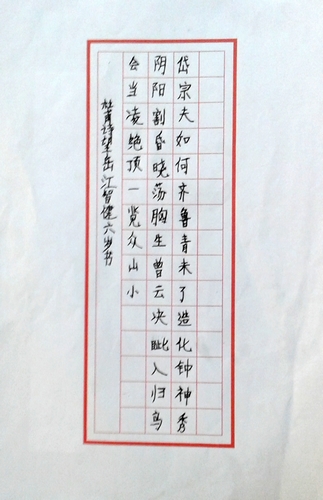 岱宗夫如何齐鲁青未了造化钟神秀
阴阳割昏晓荡胸生曾云决眦入归鸟
会当凌绝顶一览众山小
杜甫诗望岳江智健六岁书